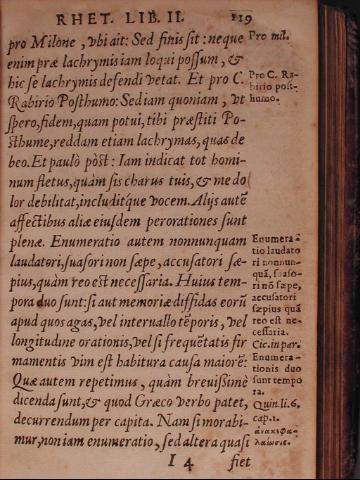 RHET. LIB. II. 119
pro Milone, vbi ait: Sed finis sit: neque
enim præ lachrymis iam loqui possum, &
hic se lachrymis defendi vetat. Et pro C.
Rabirio Posthumo: Sed iam quoniam, vt
spero, fidem, quam potui, tibi præstiti Po-
sthume, reddam etiam lachrymas, quas de
beo. Et paulò pòst: Iam indicat tot homi-
num fletus, quàm sis charus tuis, & me do
lor debilitat, includitq́ue vocem. Alijs autē
affectibus aliæ eiusdem perorationes sunt
plenæ. Enumeratio autem nonnunquam
laudatori, suasori non sæpe, accusatori sæ-
pius, quàm reo est necessaria. Huius tem-
pora duo sunt: si aut memoriæ diffidas eorū
apud quos agas, vel interuallo tēporis, vel
longitudine orationis, vel si frequētatis fir
mamentis vim est habitura causa maiorē:
Quæ autem repetimus, quàm breuissimè
dicenda sunt, & quod Græco verbo patet,
decurrendum per capita. Nam si morabi-
mur, non iam enumeratio, sed altera quasi
I 4 fiet
Pro mil.
Pro C. Ra-
birio post-
humo.
Enumera-
tio laudato
ri nonnun-
quā, suaso-
ri nō sæpe,
accusatori
sæpius quā
reo est ne-
cessaria.
Cic. in par.
Enumera-
tionis duo
sunt tempo
ra.
Quin. li. 6.
cap. 1.
ἀνακεφα-
λαίωσις.